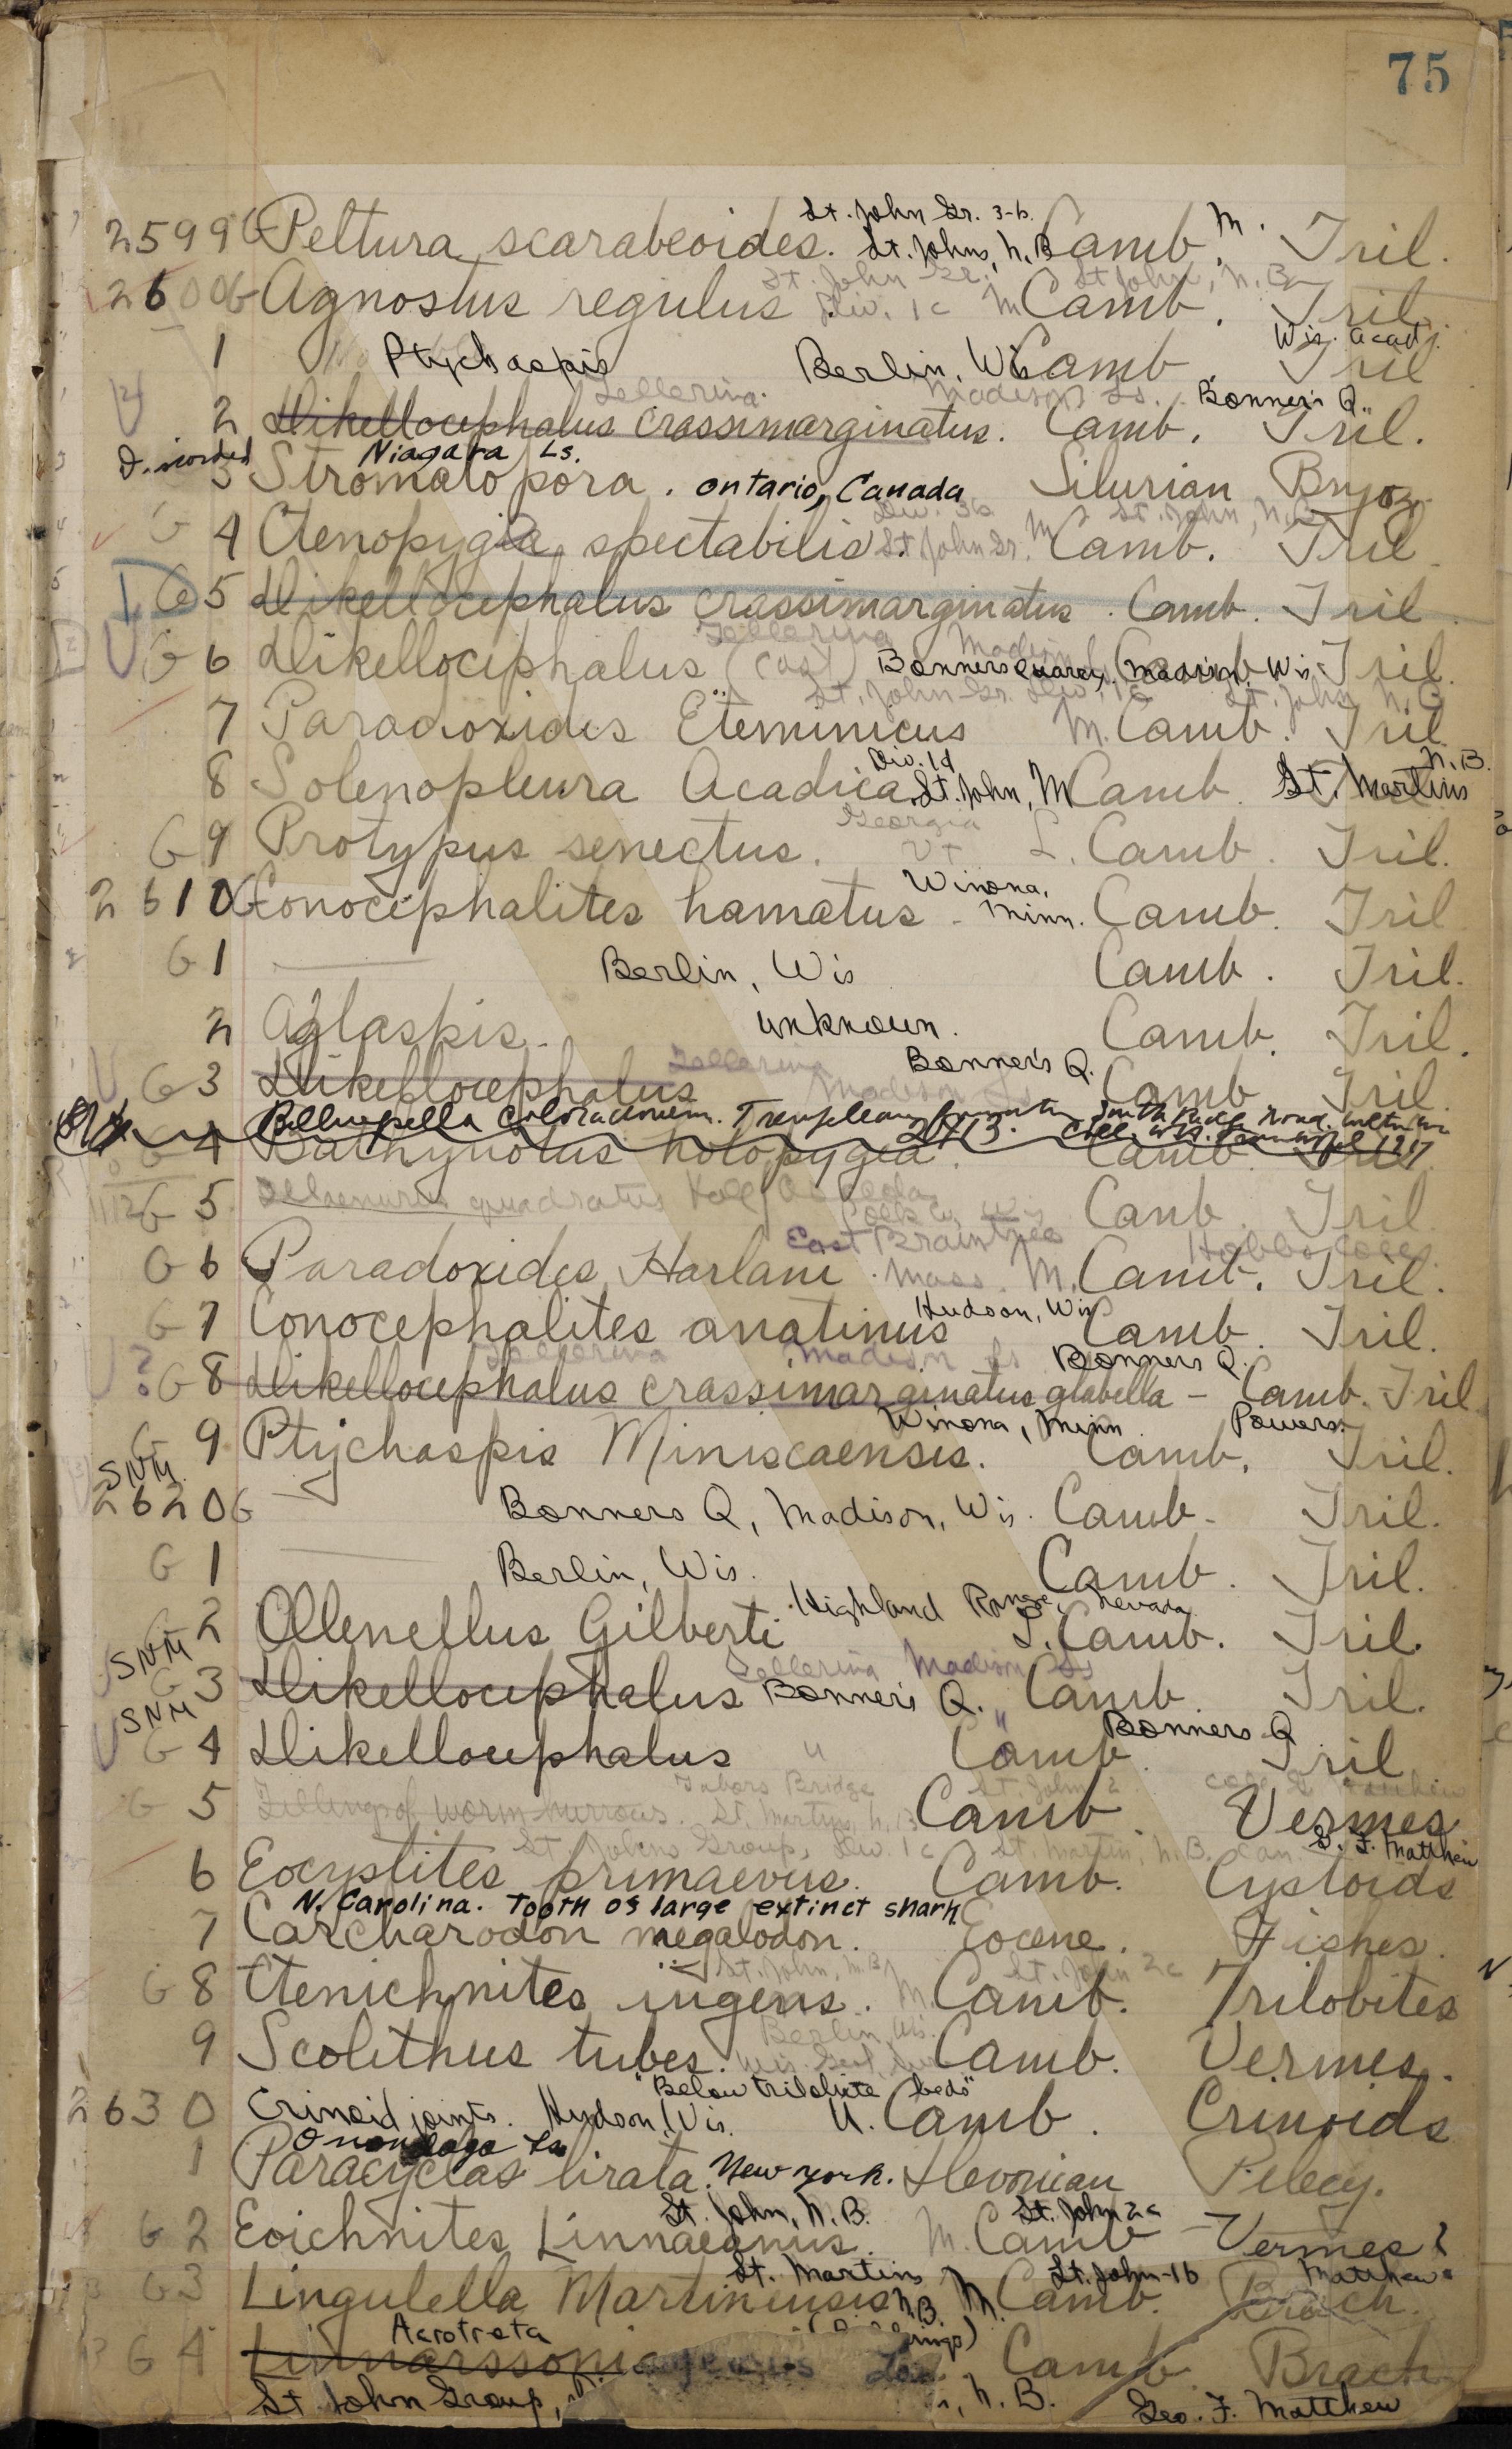 75
St. John Gr. 3-b.
2599 G Peltura scarabeoides. St. Johns, N.B. Camb. M. Tril.
St. John Gr. St John, N.B.
2600 G Agnostus regulus Div. 1c M Camb. Tril.
Wis. Acad.
1 Ptychaspis Berlin, Wis Camb Tril
Tellerina Madison Ls. Bonner's Q.
2 Dikellocephalus crassimarginatus. Camb. Tril.
Discorded Niagara Ls.
3 Stromatopora. Ontario, Canada Silurian Bryoz.
Div. 3b St. John, N.B.
G 4 Ctenopygia spectabilis. St John Gr. M Camb. Tril
G 5 Dikellocephalus crassimarginatus. Camb. Tril
Tellerina Madison
G 6 Dikellocephalus (cast) Bonners Quarry, Madison, Wis Tril.
St. John Gr. Div. 1c St. John N.B
7 Paradoxides Eteminicus M. Camb. Tril
Div. 1d N.B.
8 Solenopleura Acadica. St. John, M Camb. St. Martins
Georgia
G 9 Protypus senectus. Vt L. Camb. Tril.
Winona,
2610 G Conocephalites hamatus - Minn. Camb. Tril
G 1 Berlin, Wis Camb. Tril.
2 Aglaspis. unknown. Camb. Tril.
Tellerina Bonner's Q.
G 3 Dikellocephalus Madison Ls Camb Tril.
Billingsella coloradoensis. Trempleau formation South Ridge Road.
2413. Coll.
G 4 Bathynotus holopygia. Camb. Tril.
G 5 quadratus Hall Osceola Polk Co. Wis Camb. Tril.
East Braintree Hobbs Coll.
G 6 Paradoxides Harlani. Mass. M. Camb. Tril.
Hudson, Wis
G 7 Conocephalites anatinus Camb. Tril.
Tellerina Madison Ls Bonners Q.
? G 8 Dikellocephalus crassimarginatus glabella - Camb. Tril.
Winona, Minn Powers.
G 9 Ptychaspis Miniscaensis. Camb. Tril.
SNM
2620 G Bonners Q, Madison, Wis. Camb. Tril.
G 1 Berlin, Wis. Camb. Tril.
Highland Range, Nevada
G 2 Olenellus Gilberti L. Camb. Tril.
SNM Tellerina Madison Ls
G 3 Dikellocephalus Bonner's Q. Camb Tril.
SNM Bonners Q
G 4 Dikellocephalus " Camb. Tril
Bridge St. John 2
G 5 Fillings of worm burrows. St. Martins, N.B. Camb. Vermes
St. Johns Group, Div. 1c St. Martin, N.B. Can. G. F. Matthew
6 Eocystites primaevus. Camb. Cystoids
N. Carolina. Tooth of large extinct shark
7 Carcharodon megalodon. Eocene. Fishes.
St. John, N.B St. John 2c
G 8 Ctenichnites ingens. M. Camb. Trilobites
Berlin, Wis.
9 Scolithus tubes. Wis. Geol. Sur Camb. Vermes.
"Below trilobite beds"
2630 Crinoid joints. Hudson, Wis. U. Camb. Crinoids
Onondaga Ls
1 Paracyclas lirata. New York. Devonian Pelecy.
St. John, N.B. St. John 2c
G 2 Eoichnites Linnaeanus. M. Camb - Vermes?
St. Martins St. John-1b Matthew
G 3 Lingulella Martinensis N.B. M. Camb. Brach.
Acrotreta
G 4 Linnarssonia Camb. Brach
St John Group, N.B. Geo. F. Matthew